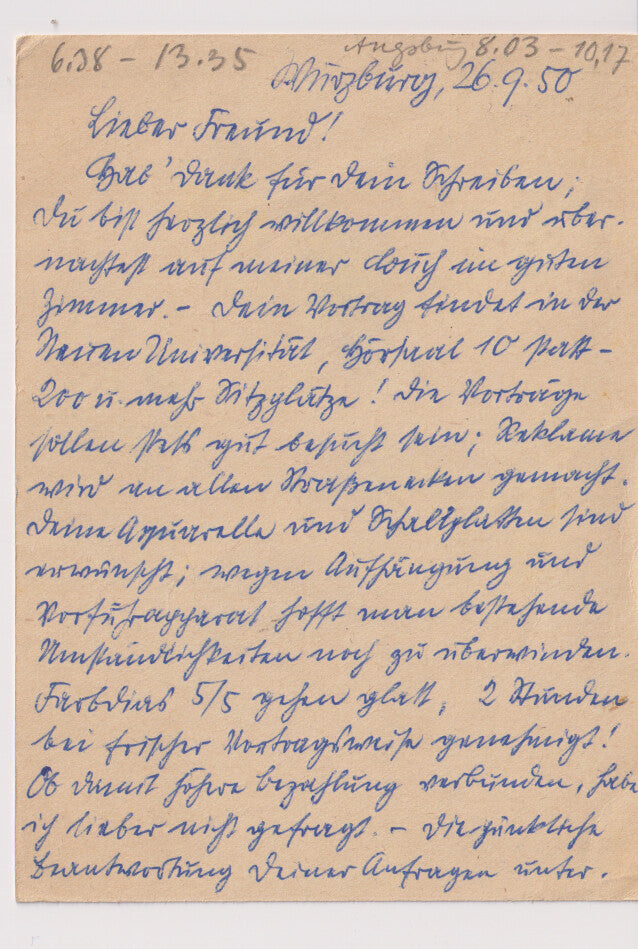 6.38 - 13.35 Augsburg 8.03 - 10,17
Würzburg, 26.9.50
Lieber Freund!
Hab' Dank für Dein Schreiben;
Du bist herzlich willkommen und über-
nachtest auf meiner Couch im guten
Zimmer. - Dein Vortrag findet in der
Neuen Universität, Hörsaal 10 statt -
200 u. mehr Sitzplätze! Die Vorträge
sollen stets gut besucht sein; Reklame
wird an allen Straßenecken gemacht.
Deine Aquarelle und Schallplatten sind
erwünscht; wegen Aufhängung und
Vorführapparat hofft man bestehende
Umständlichkeiten noch zu überwinden.
Farbdias 5/5 gehen glatt, 2 Stunden
bei frischer Vortragsweise genehmigt!
Ob damit höhere Bezahlung verbunden, habe
ich lieber nicht gefragt. - Die pünktliche
Beantwortung Deiner Anfragen unter-